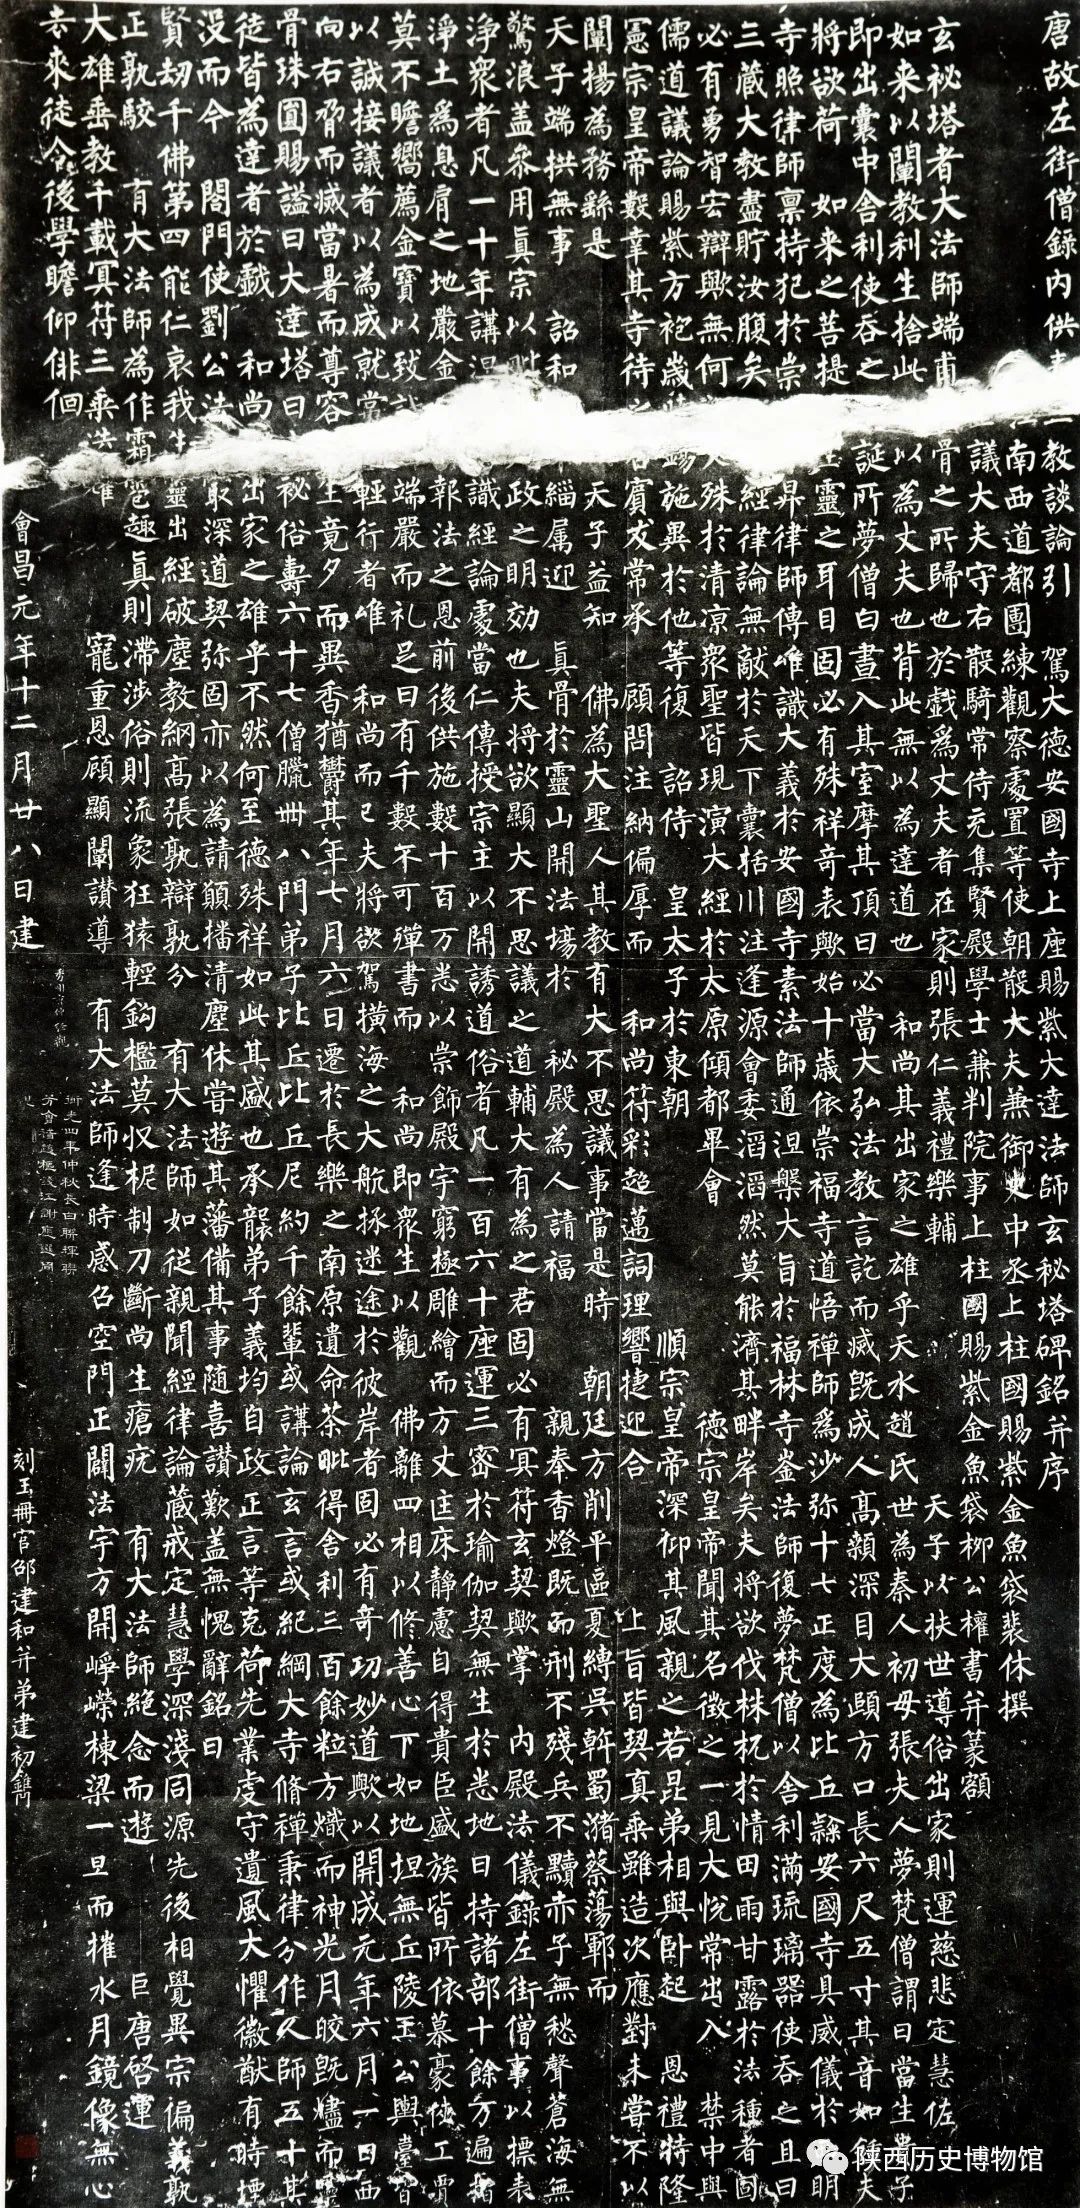 唐故左街僧錄內供教談論引 駕大德安國寺上座賜紫大達法師玄秘塔碑銘并序
南西道都團練觀察處置等使朝散大夫兼御史中丞上柱國賜紫金魚袋裴休撰
議大夫守右散騎常侍充集賢殿學士兼判院事上柱國賜紫金魚袋柳公權書并篆額
玄祕塔者大法師端甫骨之所歸也於戲爲丈夫者在家則張仁義禮樂輔 天子以扶世導俗出家則運慈悲定慧佐
如来以闡教利生捨此以為丈夫也背此無以為達道也 和尚其出家之雄乎天水趙氏世為秦人初母張夫人夢梵僧謂曰當生貴子
即出囊中舍利使吞之誕所夢僧白晝入其室摩其頂曰必當大弘法教言訖而滅既成人高顙深目大頤方口長六尺五寸其音如鍾夫
將欲荷 如来之菩提靈之耳目固必有殊祥奇表歟始十歲依崇福寺道悟禪師爲沙弥十七正度為比丘隷安國寺具威儀於西明
寺照律師稟持犯於崇昇律師傳唯識大義於安國寺素法師通涅槃大旨於福林寺崟法師復夢梵僧以舍利滿琉璃器使吞之且曰
三藏大教盡貯汝腹矣經律論無敵於天下囊括川注逢源會委滔滔然莫能濟其畔岸矣夫將欲伐株杌於情田雨甘露於法種者固
必有勇智宏辯歟無何殊於清凉衆聖皆現演大經於太原傾都畢會 德宗皇帝聞其名徵之一見大悅常出入 禁中與
儒道議論賜紫方袍歲錫施異於他等復 詔侍 皇太子於東朝 順宗皇帝深仰其風親之若昆弟相與臥起 恩禮特隆
憲宗皇帝數幸其寺待之賓友常承 顧問注納偏厚而 和尚符彩超邁詞理響捷迎合 上旨皆契真乘雖造次應對未嘗不以
闡揚為務繇是 天子益知 佛為大聖人其教有大不思議事當是時 朝廷方削平區夏縛吳斡蜀瀦蔡蕩鄆而
天子端拱無事 詔和緇属迎 真骨於靈山開法場於 秘殿為人請福 親奉香燈既而刑不殘兵不黷赤子無愁聲蒼海無
驚浪盖參用真宗以毗政之明効也夫將欲顯大不思議之道輔大有為之君固必有冥符玄契歟掌 內殿法儀錄左街僧事以標表
淨衆者凡一十年講涅識經論處當仁傳授宗主以開誘道俗者凡一百六十座運三密於瑜伽契無生於悉地日持諸部十餘万遍指
淨土為息肩之地嚴金報法之恩前後供施數十百万悉以崇飾殿宇窮極雕繪而方丈匡床靜慮自得貴臣盛族皆所依慕豪俠工賈
莫不瞻嚮薦金寶以致誠端嚴而礼足日有千數不可殫書而 和尚即衆生以觀 佛離四相以修善心下如地坦無丘陵王公輿臺皆
以誠接議者以為成就常輕行者唯 和尚而已夫將欲駕橫海之大航拯迷途於彼岸者固必有奇功妙道歟以開成元年六月一日西
向右脅而滅當暑而尊容生竟夕而異香猶鬱其年七月六日遷於長樂之南原遺命荼毗得舍利三百餘粒方熾而神光月皎既燼而靈
骨珠圓賜謚曰大達塔曰秘俗壽六十七僧臘卌八門弟子比丘比丘尼約千餘輩或講論玄言或紀綱大寺脩禪秉律分作人師五十其
徒皆為達者於戲 和尚出家之雄乎不然何至德殊祥如此其盛也承襲弟子義均自政正言等克荷先業虔守遺風大懼徽猷有時堙
沒而今 閤門使劉公法最深道契弥固亦以為請願播清塵休嘗遊其藩備其事隨喜讚歎盖無愧辭銘曰
賢劫千佛第四能仁哀我生靈出經破塵教綱高張孰辯孰分 有大法師如從親聞經律論藏戒定慧學深淺同源先後相覺異宗偏義孰
正孰駁 有大法師為作霜雹趣真則滯涉俗則流象狂猿輕鈎檻莫收柅制刀斷尚生瘡疣 有大法師絕念而遊 巨唐啓運
大雄垂教千載冥符三乘迭耀 寵重恩顧顯闡讚導 有大法師逢時感召空門正闢法宇方開崢嶸棟梁一旦而摧水月鏡像無心
去來徒令後學瞻仰徘徊
會昌元年十二月廿八日建
刻玉冊官邵建和并弟建初鐫
陕西历史博物馆